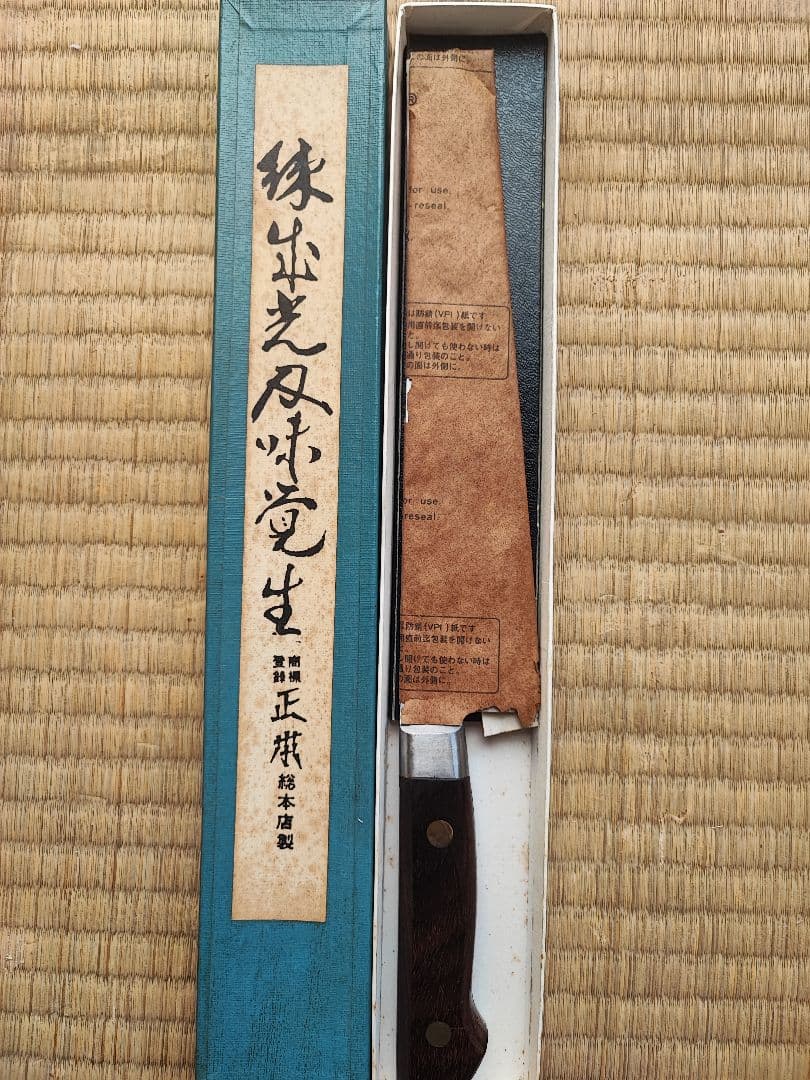 練出光刃味覚生
商標
登録
正㐂
総本店製
の面は外側に.
®
for use.
reseal
は防錆(VPI)紙です
用直前迄包装を開けない
た。
し開けても使わない時は
通り包装のこと。
の面は外側に.
or use.
reseal.
防錆(VPI)紙です
用直前迄包装を開けない
し開けても使わない時は
通り包装のこと。
の面は外側に.